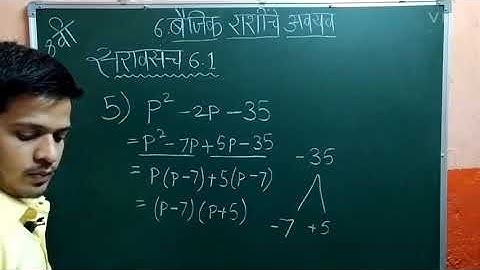 8वी
6. बैजिक राशींचे अवयव
सरावसंच 6.1
5) P² - 2P - 35
= P² - 7P + 5P - 35
= P(P-7) + 5(P-7)
= (P-7) (P+5)
-35
-7 +5